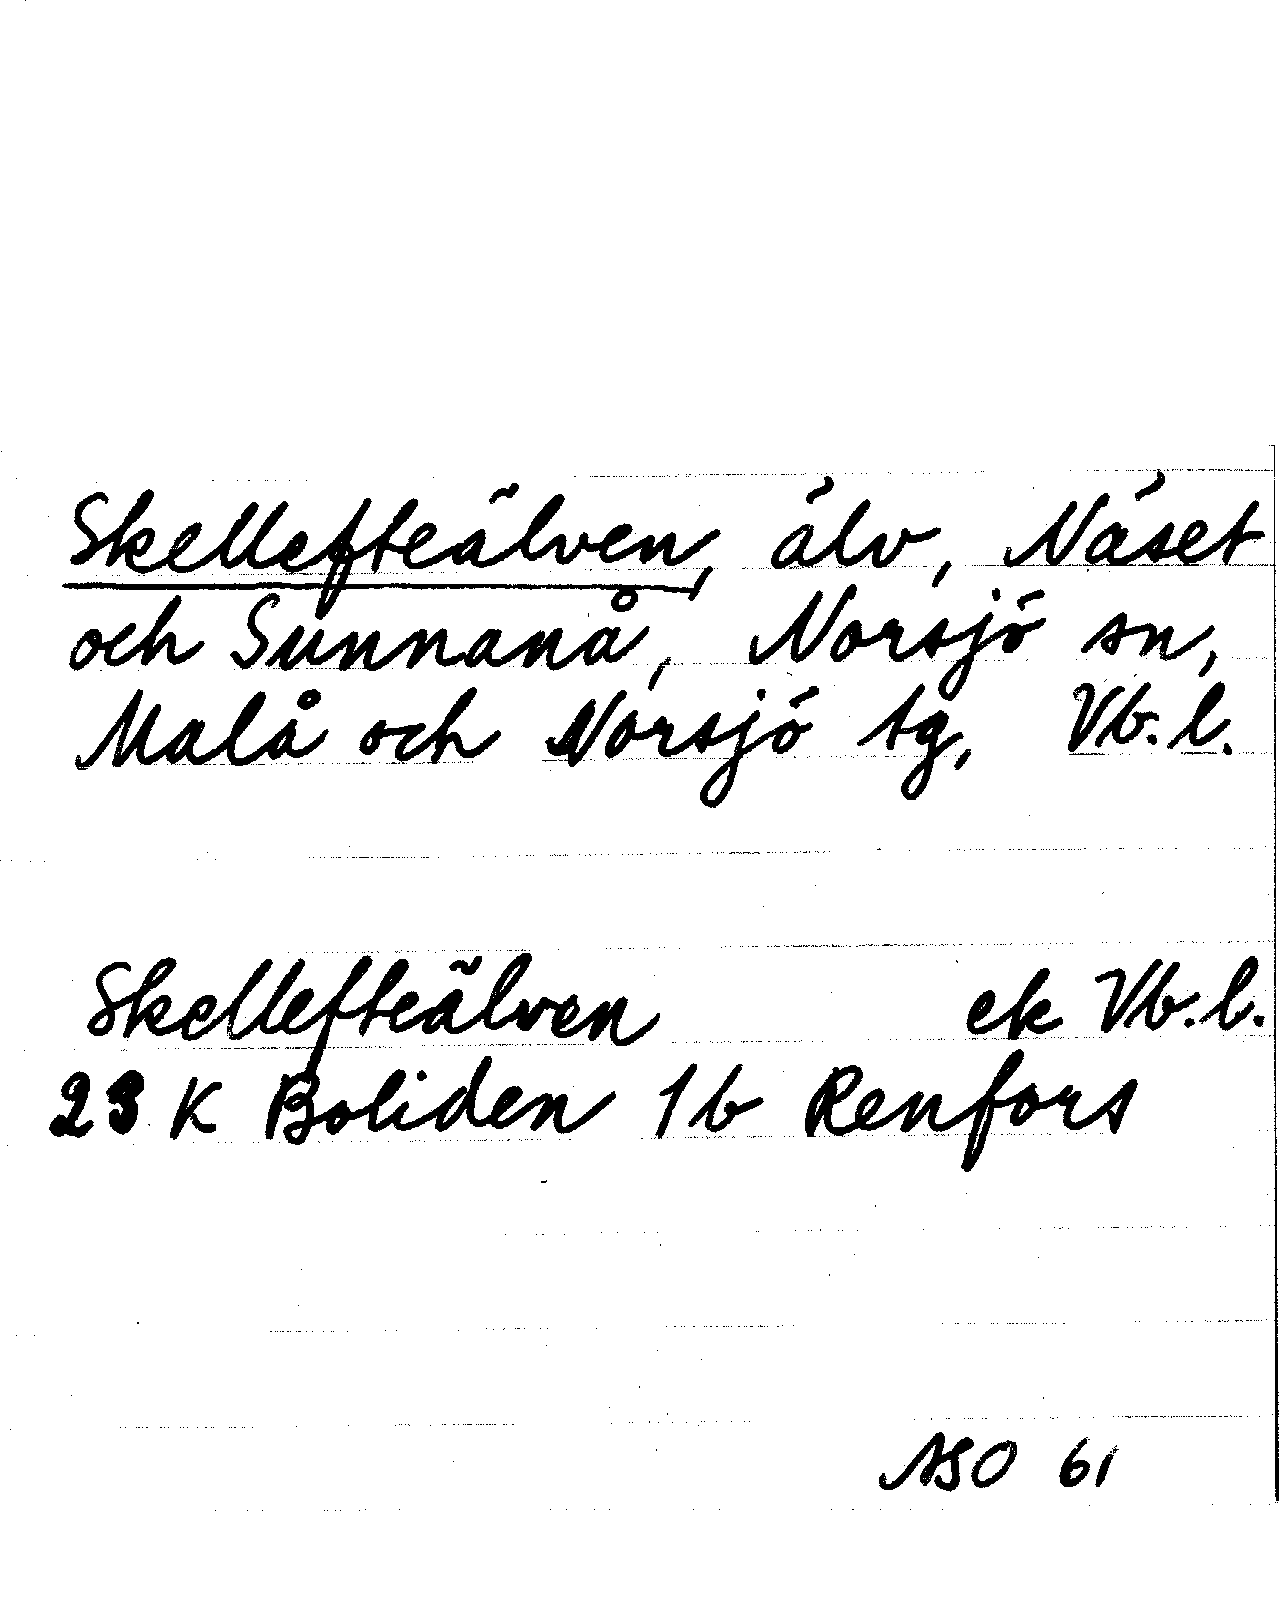 Skellefteälven, älv, Näset
och Sunnanå, Norsjö sn,
Malå och Norsjö tg, Vb.l.
Skellefteälven ek Vb.l.
23 K Boliden 1b Renfors
ASO 61